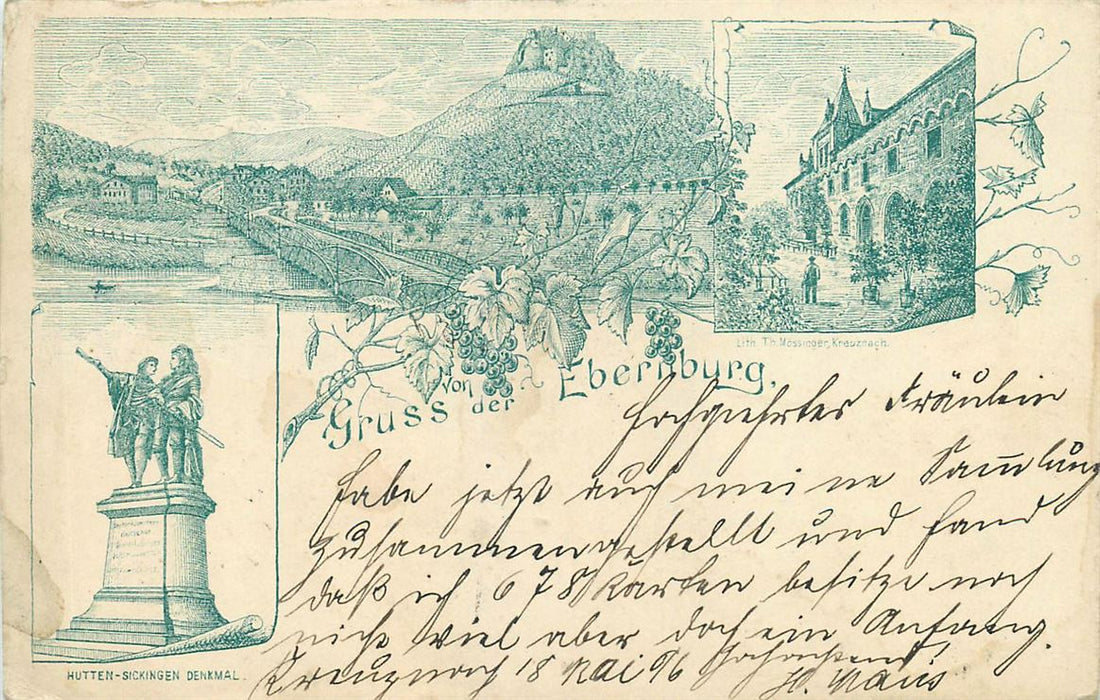 Lith. Th. Mossinger, Kreuznach.
Gruss von der Ebernburg.
Hochgeehrtes Fräulein
habe jetzt auch meine Sammlung
zusammengestellt und fand
daß ich 678 Karten besitze noch
nicht viel aber doch ein Anfang.
Kreuznach 18 Mai 96 Hochachtend
HUTTEN-SICKINGEN DENKMAL.